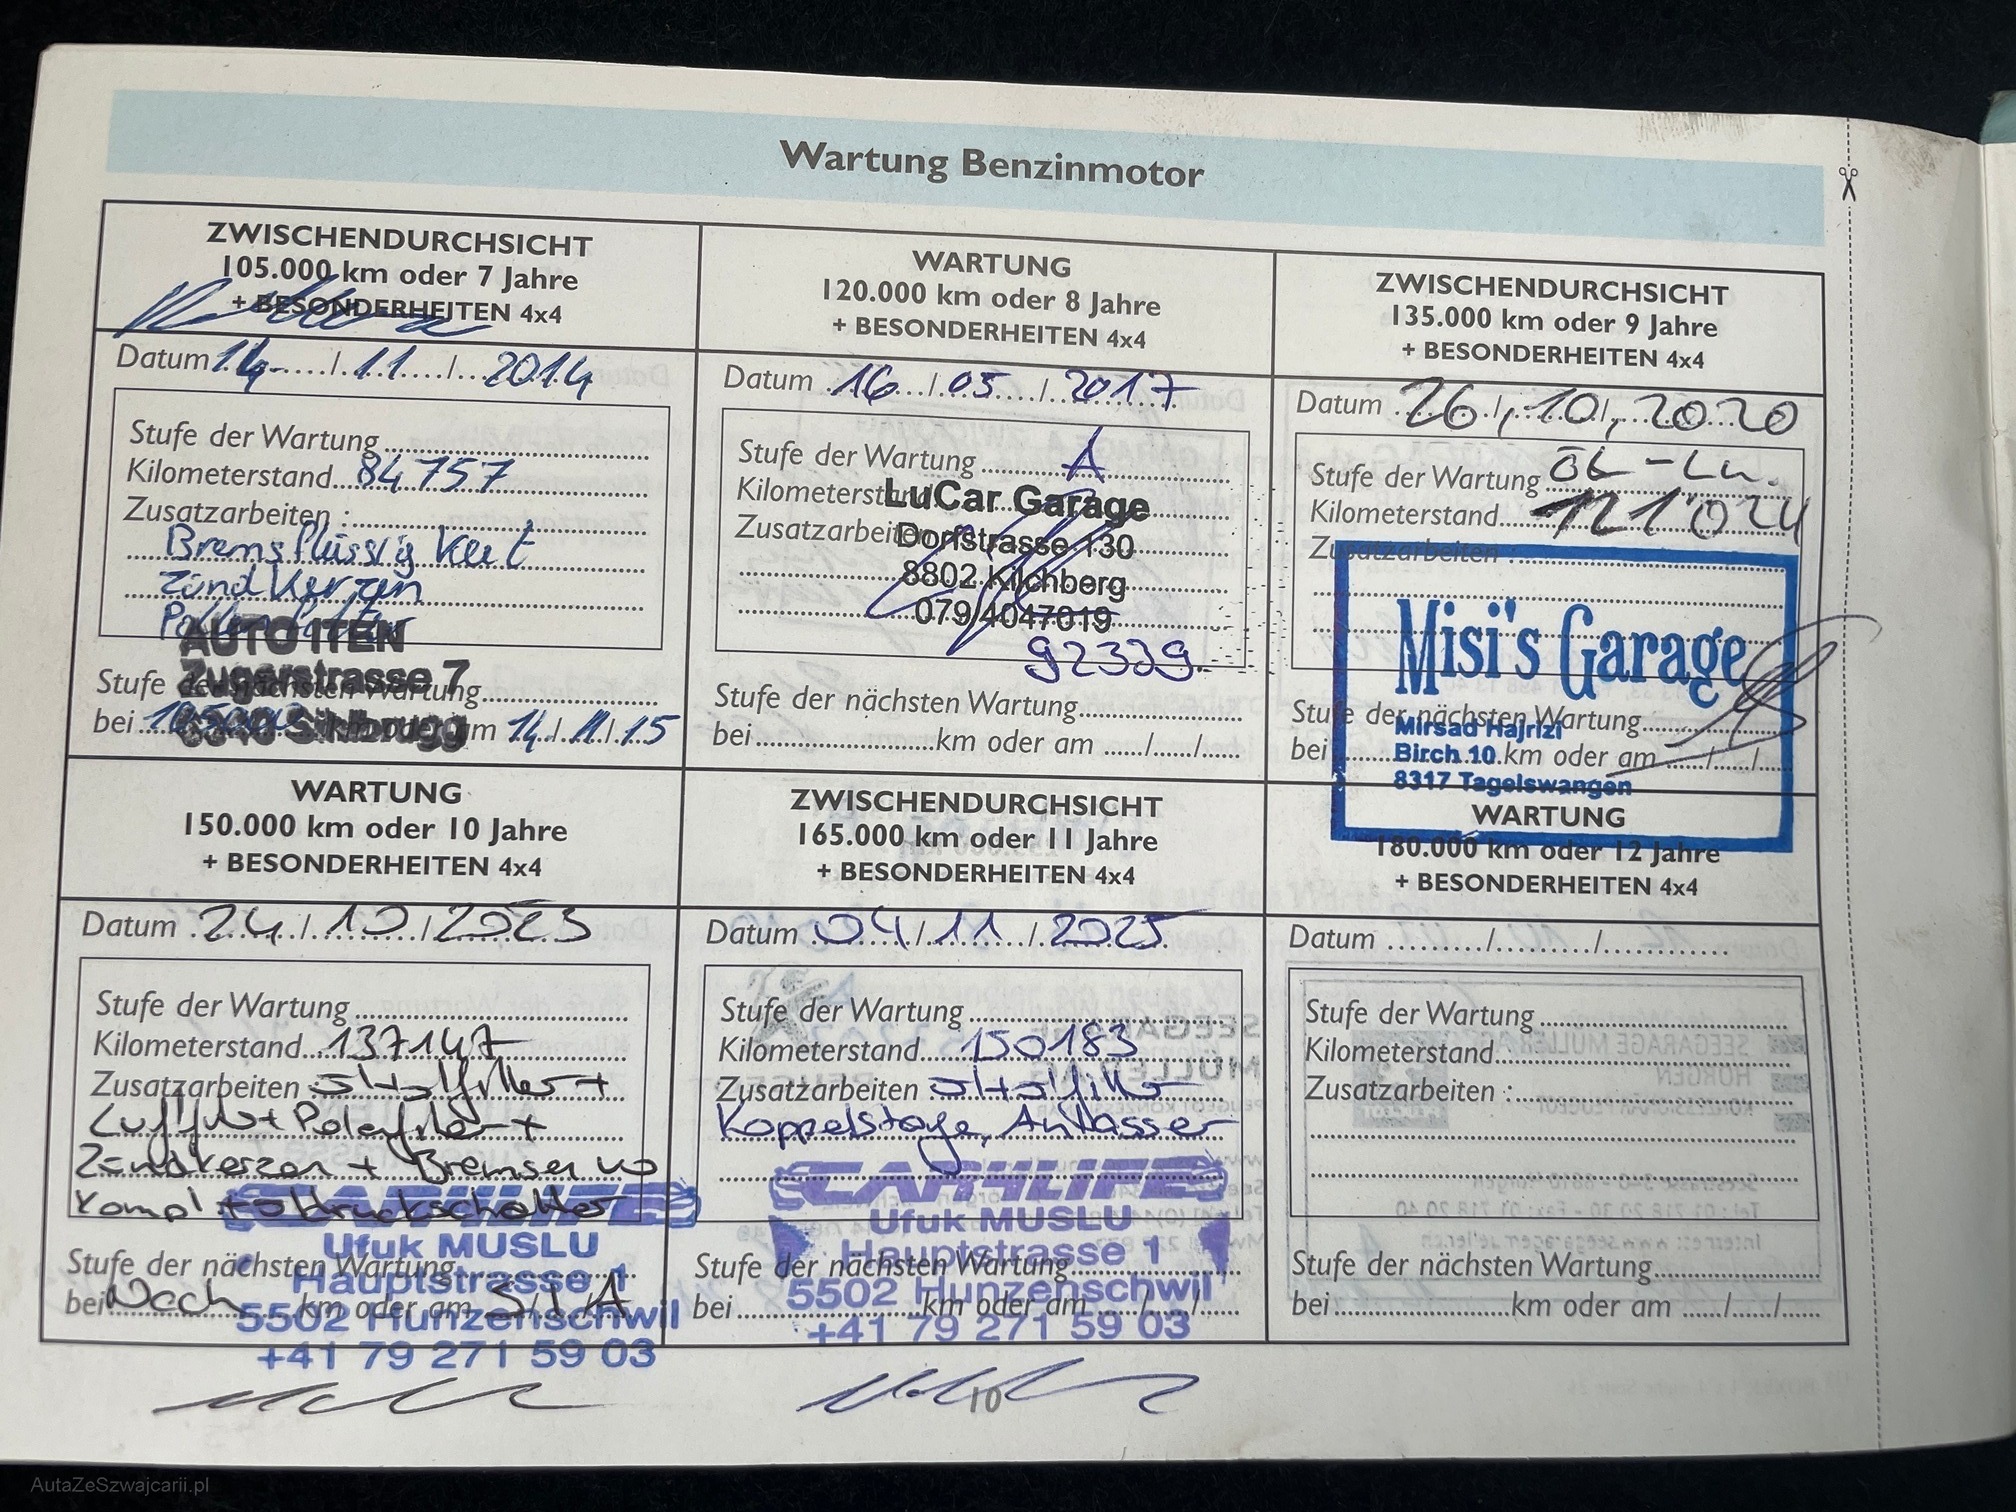 Wartung Benzinmotor
ZWISCHENDURCHSICHT
105.000 km oder 7 Jahre
+ BESONDERHEITEN 4x4
Datum 14 / 11 / 2014
Stufe der Wartung
Kilometerstand 84757
Zusatzarbeiten :
Bremsflüssig Keit
Zünd Kerzen
AUTO ITEN
Zugerstrasse 7
Stufe der nächsten Wartung
Sihlbrugg
bei am 14/11/15
WARTUNG
120.000 km oder 8 Jahre
+ BESONDERHEITEN 4x4
Datum 16 / 05 / 2017
Stufe der Wartung A
Kilometerstand
LuCar Garage
Zusatzarbeiten
Dorfstrasse 130
8802 Kilchberg
079/4047019
92339
Stufe der nächsten Wartung
bei km oder am / /
ZWISCHENDURCHSICHT
135.000 km oder 9 Jahre
+ BESONDERHEITEN 4x4
Datum 26 / 10 / 2020
Stufe der Wartung
Kilometerstand 121'024
Zusatzarbeiten :
Misi's Garage
Stufe der nächsten Wartung
Mirsad Hajrizi
bei km oder am / /
Birch 10
8317 Tagelswangen
WARTUNG
150.000 km oder 10 Jahre
+ BESONDERHEITEN 4x4
Datum 24 / 10 / 2023
Stufe der Wartung
Kilometerstand 137147
Zusatzarbeiten : öl+ölfilter+
Luftfil+Polenfilter+
Zündkerzen + Bremsen
Kompl +öldruckschalter
CAR4LIFE
Ufuk MUSLU
Stufe der nächsten Wartung
Hauptstrasse 1
bei Nach km oder am S/I/A
5502 Hunzenschwil
+41 79 271 59 03
ZWISCHENDURCHSICHT
165.000 km oder 11 Jahre
+ BESONDERHEITEN 4x4
Datum 04 / 11 / 2025
Stufe der Wartung
Kilometerstand 150183
Zusatzarbeiten öl+ölfilter
Koppelstange, Anlasser
CAR4LIFE
Ufuk MUSLU
Hauptstrasse 1
Stufe der nächsten Wartung
5502 Hunzenschwil
bei km oder am / /
+41 79 271 59 03
WARTUNG
180.000 km oder 12 Jahre
+ BESONDERHEITEN 4x4
Datum / /
Stufe der Wartung
Kilometerstand
Zusatzarbeiten :
Stufe der nächsten Wartung
bei km oder am / /
10
AutaZeSzwajcarii.pl